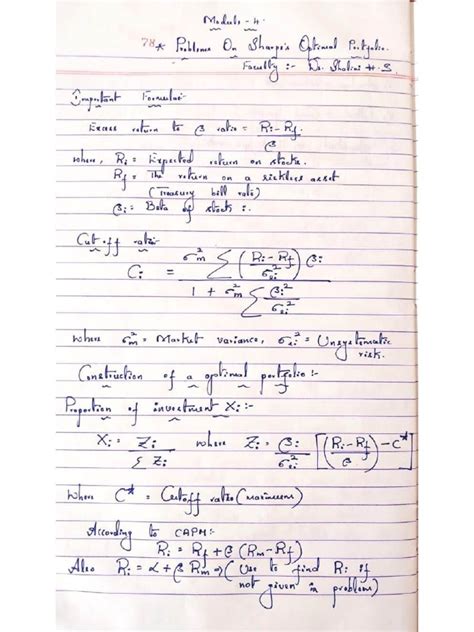 Module - 4.
78 * Problems On Sharpe's Optimal Portfolio.
Faculty :- Dr. Shalini H.S
Important Formulas
Excess return to β ratio = Ri - Rf / β
where, Ri = Expected return on stocks.
Rf = The return on a riskless asset
(Treasury bill rate)
βi = Beta of stock :-
Cut off ratio:
Ci = σm² Σ ((Ri - Rf) / σei²) βi / 1 + σm² Σ βi² / σei²
where σm² = Market variance, σei² = Unsystematic
risk.
Construction of a optimal portfolio :-
Proportion of investment Xi :-
Xi = Zi / Σ Zi where Zi = βi / σei² [(Ri - Rf / β) - C*]
When C* = Cutoff ratio (maximum)
According to CAPM:-
Ri = Rf + β (Rm - Rf)
Also Ri = α + β Rm ⇒ (Use to find Ri if
not given in problem)